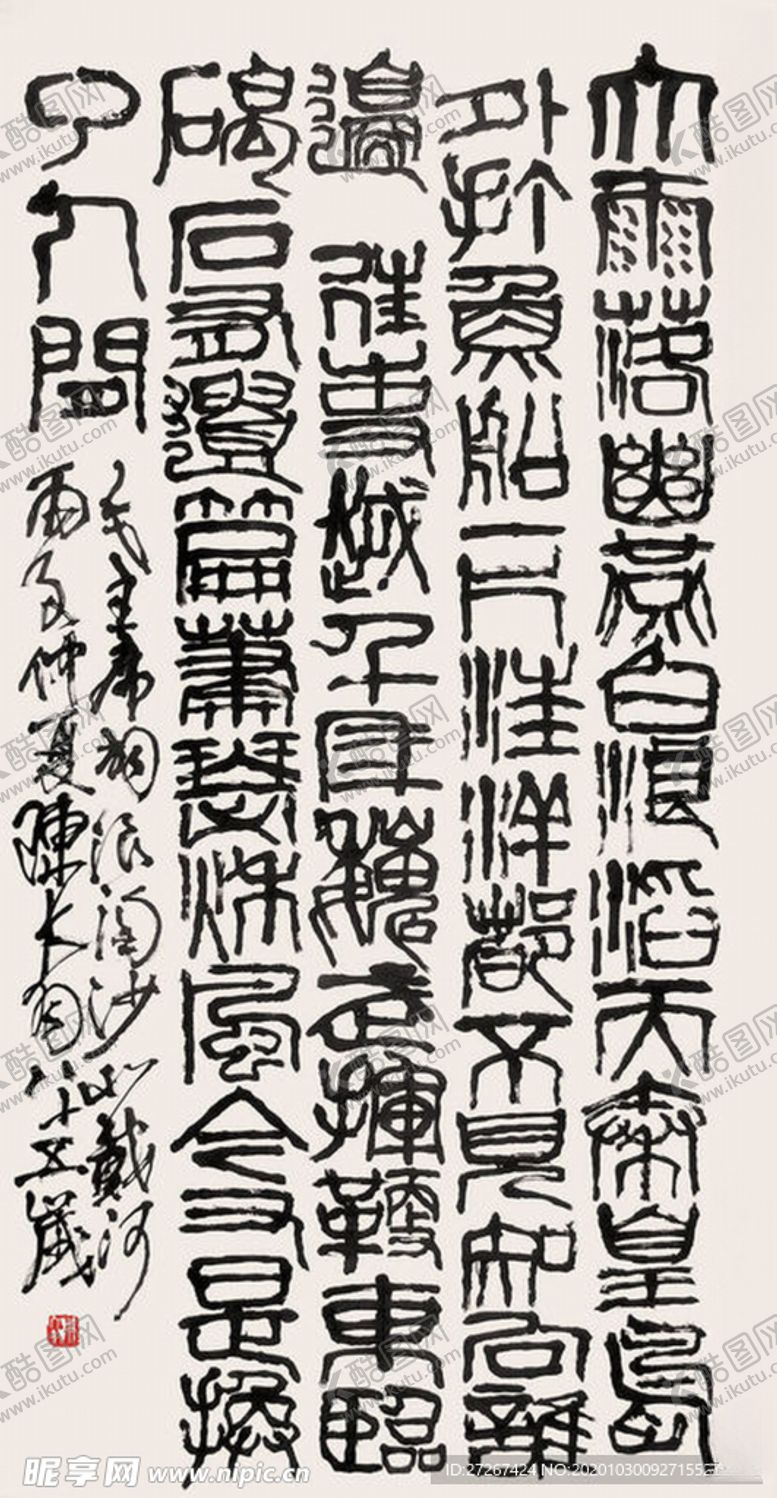 大雨落幽燕白浪滔天秦皇島
外打魚船一片汪洋都不見知向誰
邊 往事越千年魏武揮鞭東臨
碣石有遺篇蕭瑟秋風今又是換
了人間
毛主席詞浪淘沙北戴河
丙子仲夏陳大羽八十五歲
酷图网
www.ikutu.com
昵享网 www.nipic.cn
ID:27267424